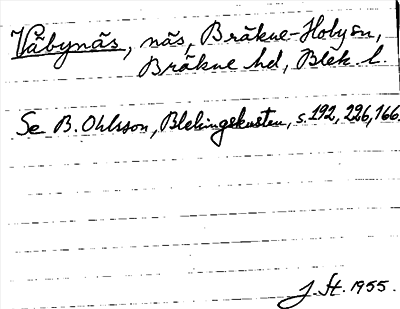 Väbynäs, näs, Bräkne-Hoby sn,
Bräkne hd, Blek. l.
Se B. Ohlsson, Blekingekusten, s. 192, 226, 166.
J. St. 1955.